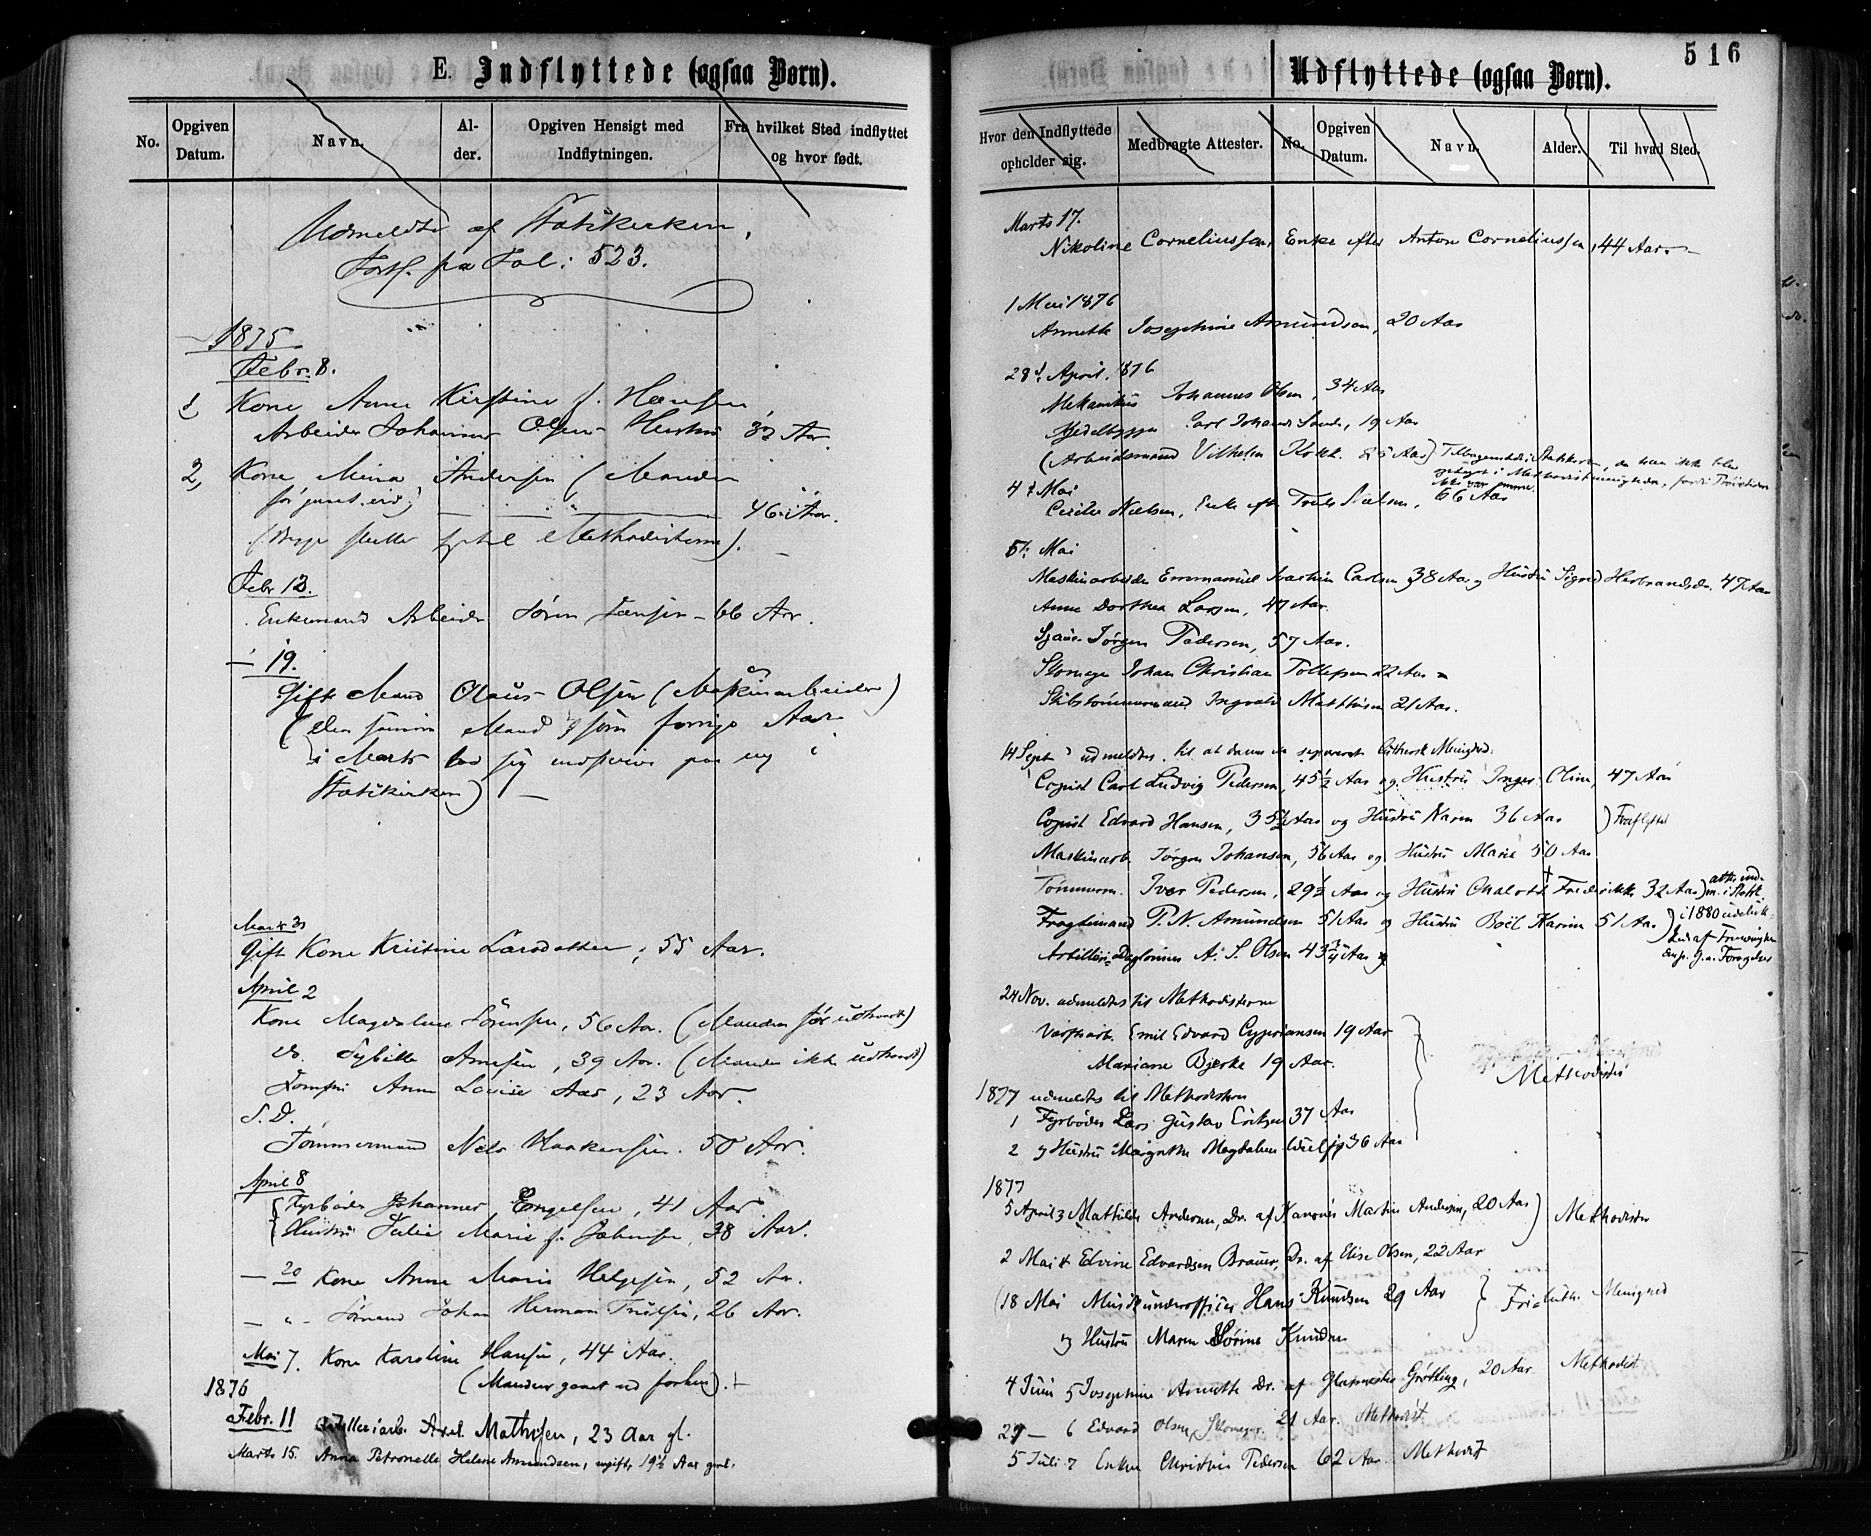 516
E. Indflyttede (ogsaa Børn).
No.
Opgiven Datum.
Navn.
Al-der.
Opgiven Hensigt med Indflytningen.
Fra hvilket Sted indflyttet og hvor født.
Udmeldte af Statskirken,
Forts. fra Fol: 523.
1875
Febr. 8.
1, Kone Anne Kirstine f. Hansen
Arbeider Johannes Olsens Hustru
2, Kone Mina Andersen (Manden
før gaaet ud) 46 Aar.
(Begge slutter sig til Methodisterne).
Febr 12.
Enkemand Arbeider Søren Jansen - 66 Aar.
19.
Gift Mand Olaus Olsen (Maskinarbeider)
(Den samme Mand som forrige Aar
i Marts lod sig indskrive paa ny i
Statskirken)
Marts 3
Gift Kone Kristine Larsdatter, 55 Aar.
April 2
Kone Magdalene Sørensen, 56 Aar. (Manden før udtraadt)
do. Sybille Arnesen, 39 Aar. (Manden ikke udtraadt)
Jomfru Anna Lovise Aas, 23 Aar.
S. D.
Tømmermand Nils Haakensen. 50 Aar.
April 8
Fyrbøder Johannes Engelsen, 41 Aar
Hustru Julie Marie f. Johnsen, 38 Aar.
20 Kone Anne Marie Helgesen, 52 Aar.
" Sømand Johan Herman 26 Aar.
Mai 7. Kone Karoline Hansen, 44 Aar.
(Manden gaaet ud forhen).
1876
Febr. 11 Artilleriarb. Axel Mathisen, 23 Aar gl.
Marts 15. Anna Petronelle Helene Amundsen, ugift, 19½ Aar gml.
Udflyttede (ogsaa Børn).
Hvor den Indflyttede opholder sig.
Medbragte Attester.
No.
Opgiven Datum.
Navn.
Alder.
Til hvad Sted.
Marts 17.
Nikoline Corneliussen, Enke efter Anton Corneliussen, 44 Aar.
1 Mai 1876
Annette Josephine Amundsen, 20 Aar
28d. April. 1876
Mekanikus Johannes Olsen, 34 Aar
Carl Johan 19 Aar
(Arbeidsmand Vilhelm Kokk. Aar) Tilbagemeldt i Statskirken, da han ikke blev
optaget i Methodistmenigheden, fordi
ikke var
4d. Mai
Cecilie Nielsen, Enke efter Nielsen, 66 Aar
5t. Mai
Maskinarbeider Emmanuel Joachim Carlsen 38 Aar og Hustru Sigrid Herbrandsdr. 47 Aar
Anne Dorthea Larsen, 47 Aar.
Jørgen Pedersen, 57 Aar.
Skomager Johan Christian Tollefsen 22 Aar
Skibstømmermand Ingvald Mathisen 21 Aar.
14 Sept. udmeldtes til at danne en separeret luthersk Menighed:
Copist Carl Ludvig Pedersen, 45½ Aar og Hustru Inger Oline, 47 Aar
Copist Edvard Hansen, 35½ Aar og Hustru Karen 36 Aar ) Fraflyttet
Maskinarb. Jørgen Johansen, 56 Aar og Hustru Marie 50 Aar
Tømmerm. Iver Pedersen, 29½ Aar og Hustru Fredrikke 32 Aar) atter ind-
m. i Statsk.
Fragtemand P. N. Amundsen 51 Aar og Hustru Boel Karine 51 Aar ) i 1880
af Frimenigheden
Artilleri A. S. Olsen 43¾ Aar og
24 Nov. udmeldtes til Methodisterne
Værftsarb. Emil Edvard Cypriansen 19 Aar
Mariane Bjerke 19 Aar.
Methodister
1877 udmeldtes til Methodisterne
1 Fyrbøder Lars Gustav 37 Aar
2 og Hustru Margrethe Magdalene 36 Aar
1877
5 April 3 Mathilde Andersen, Dr. af Martin Andersen, 20 Aar) Methodister
2 Mai 4 Elvine Edvardsen Brauer, Dr. af Elise Olsen, 22 Aar
(18 Mai Musikunderofficer Hans Knudsen 29 Aar } Friluth. Menighed
og Hustru Maren Sørine Knudsen
4 Juni 5 Josephine Annette Dr. af Glasmester Grøtting, 20 Aar Methodist
29 — 6 Edvard Olsen, Skomager. 21 Aar. Methodist
5 Juli 7 Enken Christine Pedersen 62 Aar. Methodist